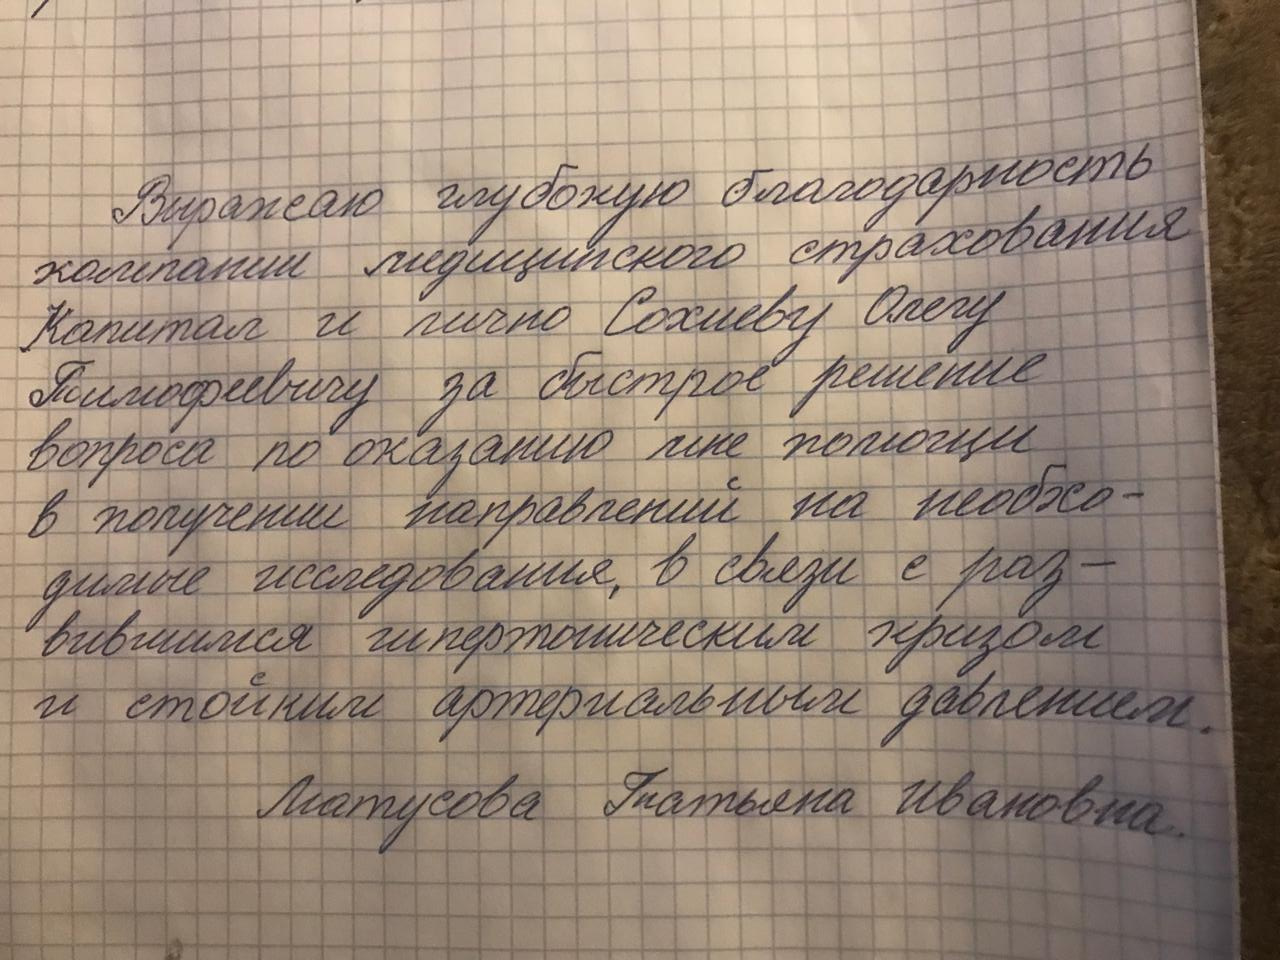 Выражаю глубокую благодарность
компании медицинского страхования
Капитал и лично Сохиеву Олегу
Тимофеевичу за быстрое решение
вопроса по оказанию мне помощи
в получении направлений на необхо-
димые исследования, в связи с раз-
вившимся гипертоническим кризом
и стойким артериальным давлением.
Матусова Татьяна Ивановна.